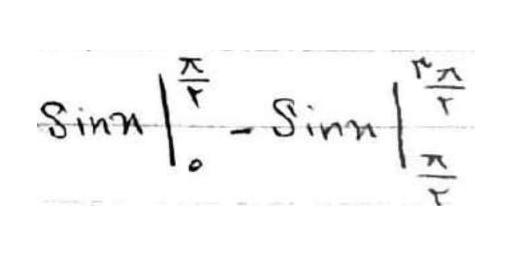 Sinx |₀^(π/۲) - Sinx |_(π/۲)^(۳π/۲)